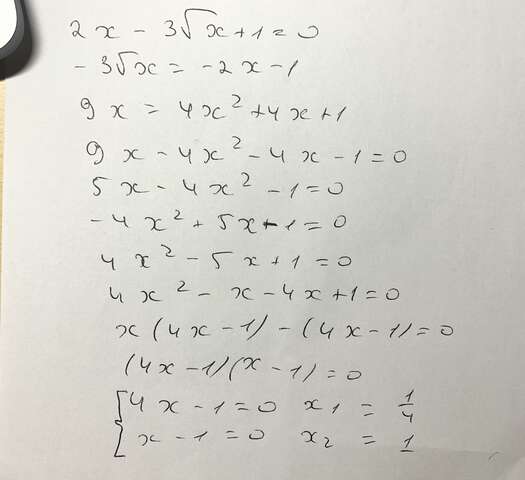 2x - 3√x + 1 = 0
- 3√x = -2x - 1
9x = 4x² + 4x + 1
9x - 4x² - 4x - 1 = 0
5x - 4x² - 1 = 0
- 4x² + 5x - 1 = 0
4x² - 5x + 1 = 0
4x² - x - 4x + 1 = 0
x(4x - 1) - (4x - 1) = 0
(4x - 1)(x - 1) = 0
[4x - 1 = 0 x₁ = 1/4
[x - 1 = 0 x₂ = 1